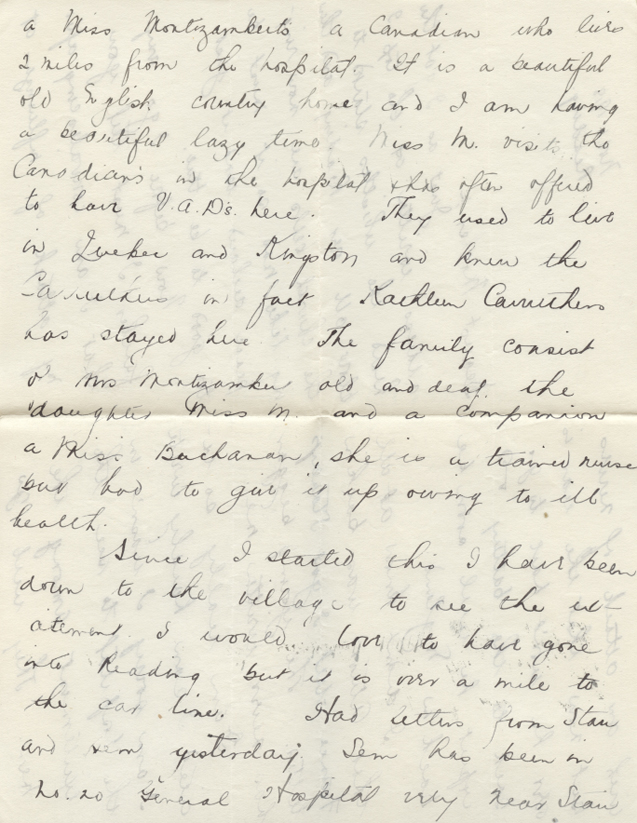 a Miss Montizamberts a Canadian who lives
2 miles from the hospital. It is a beautiful
old English country home and I am having
a beautiful lazy time. Miss M. visits the
Canadians in the hospital & has often offered
to have V.A.Ds. here. They used to live
in Quebec and Kingston and knew the
Carruthers in fact Kathleen Carruthers
has stayed here. The family consist
of Mrs Montizamber old and deaf, the
daughter Miss M. and a companion
a Miss Buchanan, she is a trained nurse
but had to give it up owing to ill
health.
Since I started this I have been
down to the village to see the ex-
citement. I would love to have gone
into Reading but it is over a mile to
the car line. Had letters from Stan
and yesterday. Sem has been in
No. 20 General Hospital very near Stan